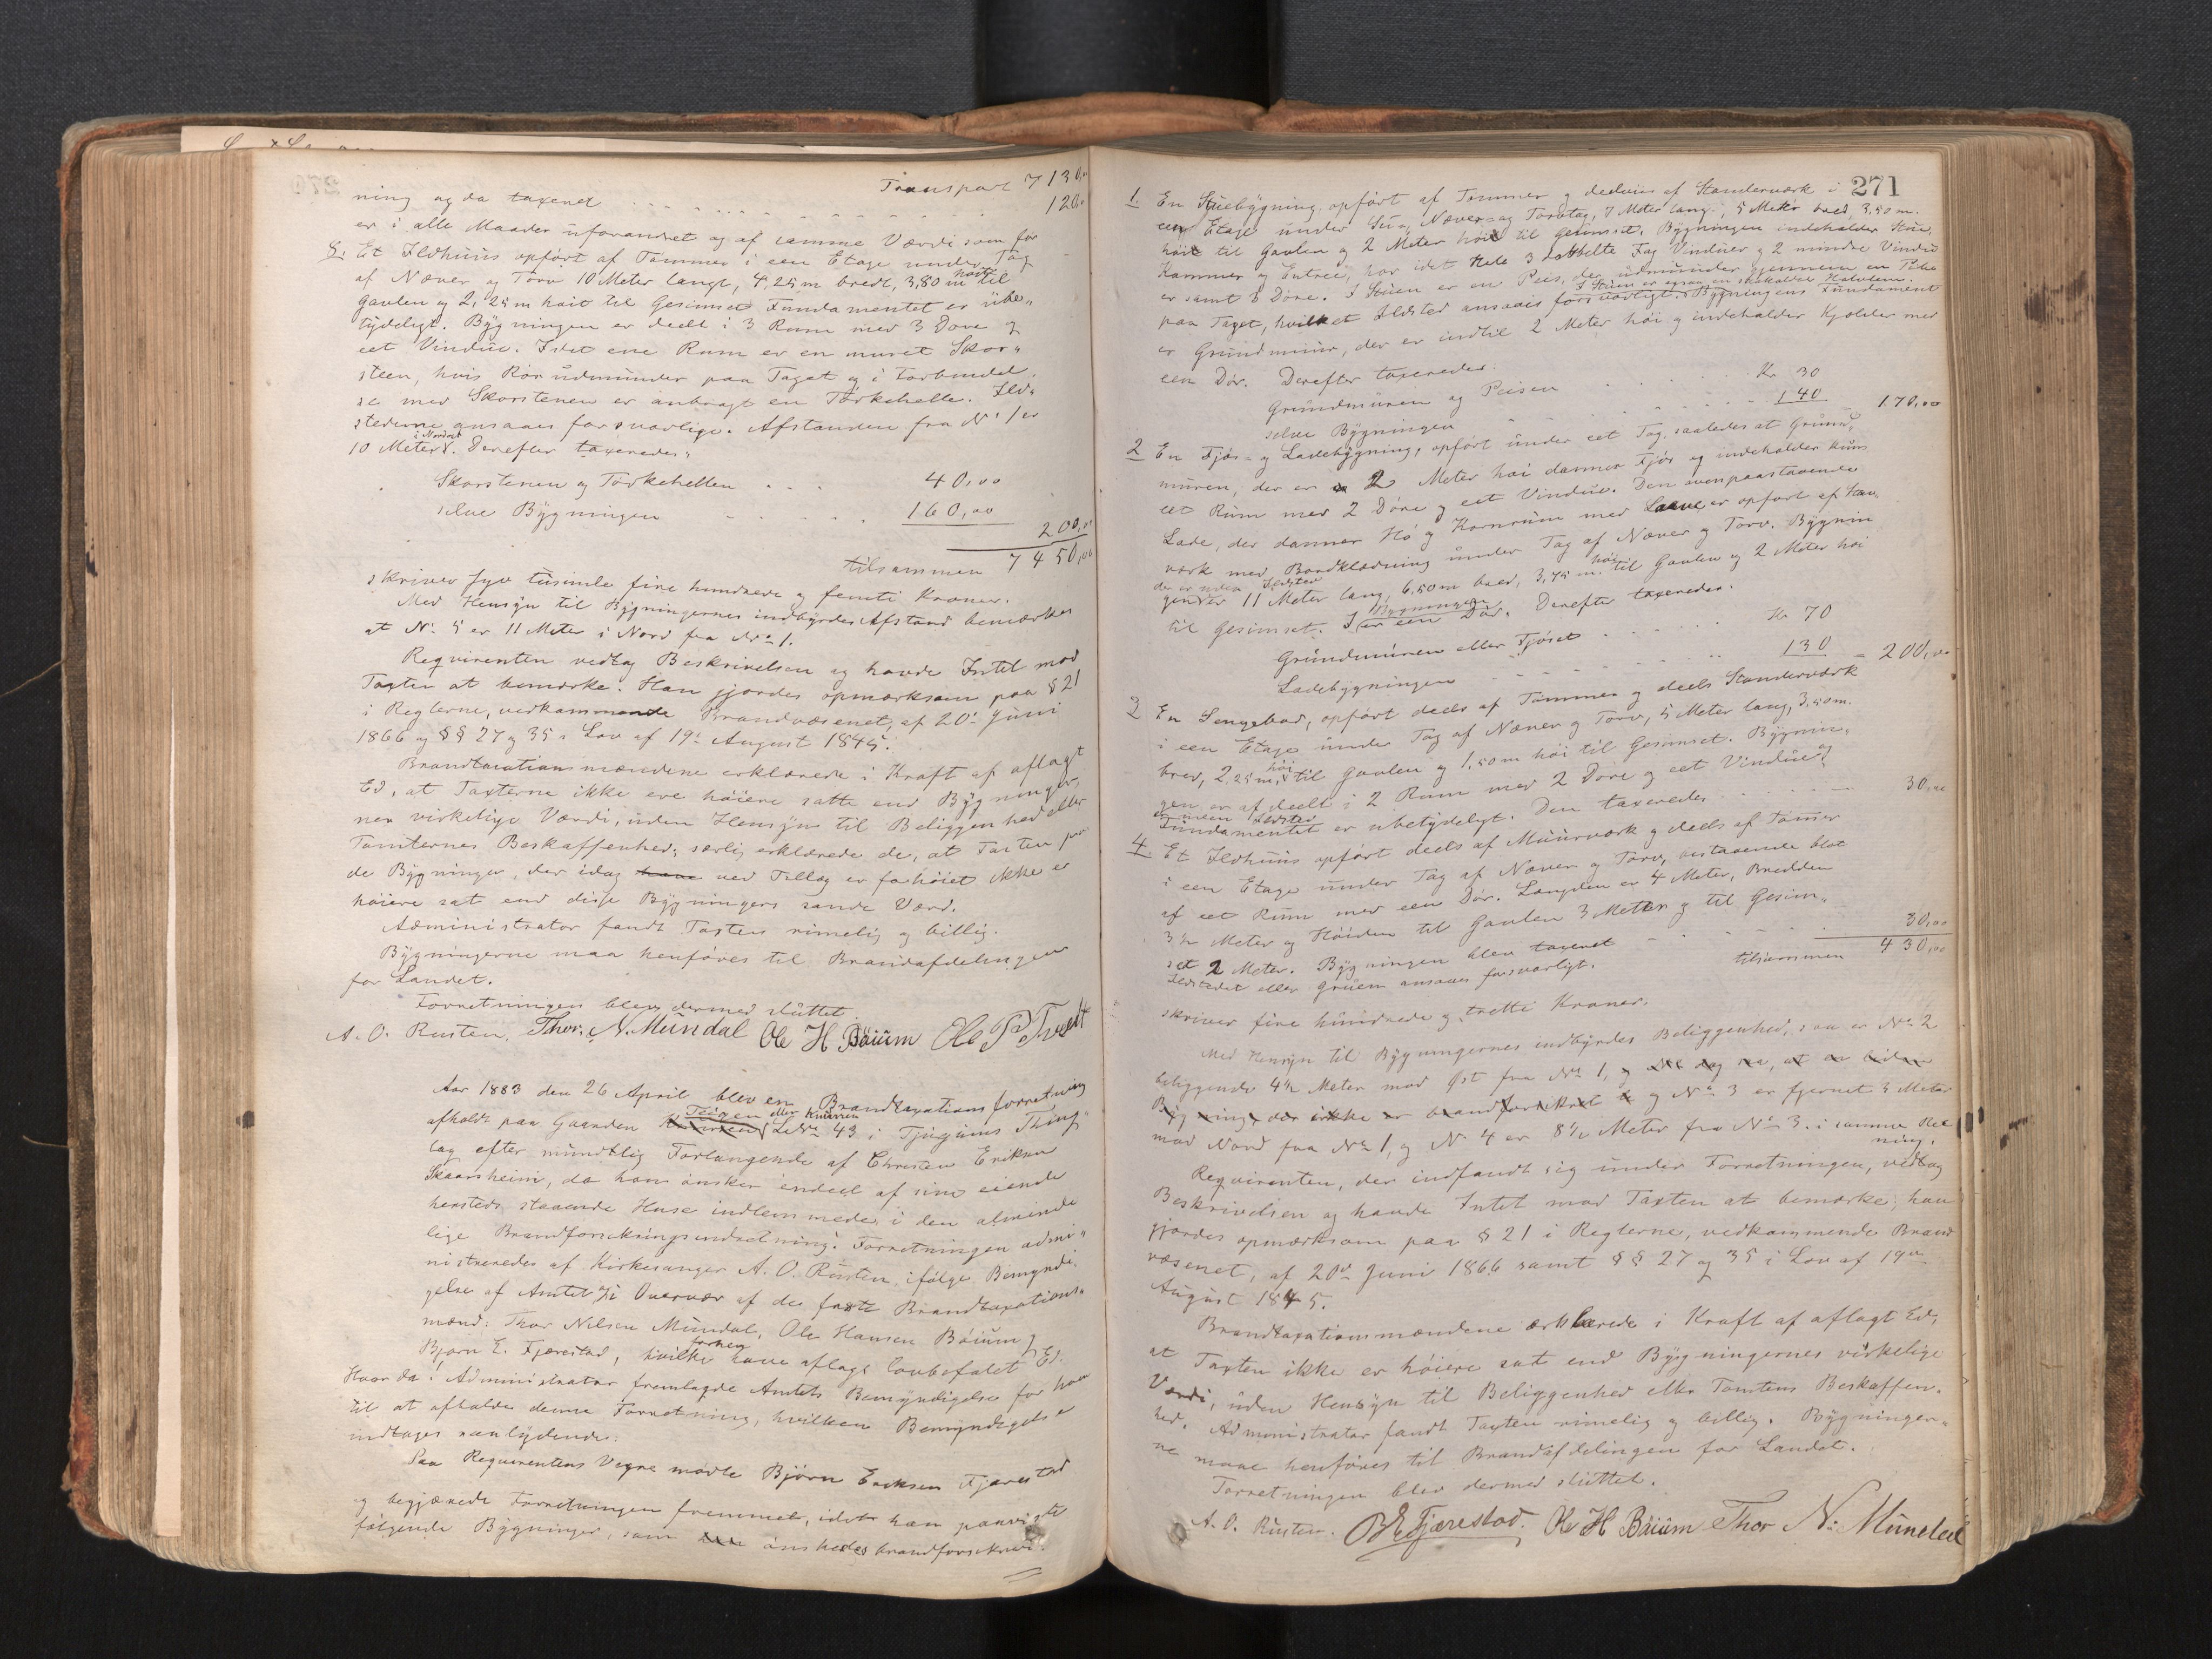 Transport 7130,00
ning og da taxeret . . . . . . . . . . 120.
er i alle Maader uforandret og af samme Værdi som før
8. Et Ildhuus opført af Tømmer i een Etage under Tag
af Næver og Torv 10 Meter langt, 4,25 m bredt, 3,80 m høit til
Gavlen og 2,25 m høit til Gesimset Fundamentet er ube„
tydeligt. Bygningen er deelt i 3 Rum med 3 Døre og
eet Vindue. I det ene Rum er en muret Skor„
steen, hvis Rør udmunder paa Taget og i Forbindel„
se med Skorstenen er anbragt en Tørkehelle. Ild„
stederne ansaaes forsvarlige. Afstanden fra No 1 er
10 Meter i Nordost. Derefter taxeredes„
Skorstenen og Tørkehellen . . . 40,00
selve Bygningen . . . . . 160,00
200,00
tilsammen 7450,00
skriver syv tusinde fire hundrede og femti Kroner.
Med Hensyn til Bygningernes indbyrdes Afstand bemærkes
at No 5 er 11 Meter i Nord fra No 1.
Reqvirenten vedtog Beskrivelsen og havde Intet mod
Taxten at bemærke. Han gjordes opmærksom paa § 21
i Reglerne, vedkommende Brandvæsenet, af 20de Juni
1866 og §§ 27 og 35 i Lov af 19de August 1845.
Brandtaxationsmændene erklærede i Kraft af aflagt
Ed, at Taxterne ikke ere høiere satte end Bygninger„
nes virkelige Værdi, uden Hensyn til Beliggenhed eller
Tomternes Beskaffenhed; særlig erklærede de, at Taxten paa
de Bygninger, der idag have ved Tillæg er forhøiet ikke er
høiere sat end disse Bygningers sande Værd.
Administrator fandt Taxten rimelig og billig.
Bygningerne maa henføres til Brandafdelingen
for Landet.
Forretningen blev dermed sluttet
A. O. Rusten, Thor. N. Mundal Ole H Bøium Ole P Tvedt
Aar 1883 den 26 April blev en Brandtaxationsforretning
afholdt paa Gaarden Teigen eller Knarren LNo 43 i Tjugums Thing„
lag efter mundtlig Forlangende af Christen Eriksen
Skaarsheim, da han ønsker endeel af sine eiende
hersteds staaende Huse indlemmede i den alminde
lige Brandforsikringsindretning. Forretningen admi„
nistreredes af Kirkesanger A. O. Rusten ifølge Bemyndi„
gelse af Amtet i Overvær af de faste Brandtaxations„
mænd: Thor Nilsen Mundal, Ole Hansen Bøium og
Bjørn E. Fjærestad, hvilke forhen have aflagt lovbefalet Ed.
Hvor da: Administrator fremlagde Amtets Bemyndigelse for ham
til at afholde denne Forretning, hvilken Bemyndigelse
indtages saalydende:
Paa Reqvirentens Vegne mødte Bjørn Eriksen Fjærestad
og begjærede Forretningen fremmet, idet han paaviste
følgende Bygninger, som ønskedes brandforsikrede:
271
1. En Stuebygning, opført af Tømmer og deelviis af Stænderværk i
een Etage under Sus, Næver- og Torvtag, 7 Meter lang, 5 Meter bred, 3,50 m.
høi til Gavlen og 2 Meter høi til Gesimset. Bygningen indeholder Stue,
Kammer og Entree, har idet Hele 3 dobbelte Fag Vinduer og 2 mindre Vindu
er samt 5 Døre. I Stuen er en Peis, der udmunder gjennem en Pibe
I Stuen er ogsaa en saakaldet Kakelovn.
paa Taget, hvilket Ildsted ansaaes forsvarligt. Bygningens Fundament
er Grundmuur, der er indtil 2 Meter høi og indeholder Kjælder med
een Dør. Derefter taxeredes:
Grundmuren og Peisen . . . . Kr 30
selve Bygningen . . . . . 140 170,00
2 En Fjøs- og Ladebygning, opført under eet Tag, saaledes at Grund„
muren, der er 2 Meter høi danner Fjøs og indeholder kun
eet Rum med 2 Døre og eet Vindue. Den ovenpaastaaende
Lade, der danner Hø og Kornrum med Laave er opført af Stav„
værk med Bordklædning under Tag af Næver og Torv. Bygnin
der er uden Ildsted
gen er 11 Meter lang, 6,50 m bred, 3,75 m. høi til Gavlen og 2 Meter høi
til Gesimset. I Bygningen er een Dør. Derefter taxeredes:
Grundmuren eller Fjøset . . . . . Kr 70
Ladebygningen . . . . . . 130 = 200,00
3 En Sengebod, opført deels af Tømmer og deels Stænderværk
i een Etage under Tag af Næver og Torv, 5 Meter lang, 3,50 m.
bred, 2,25 m, høi til Gavlen og 1,50 m høi til Gesimset. Bygnin„
gen er afdeelt i 2 Rum med 2 Døre og eet Vindue og
er uden Ildsted
Fundamentet er ubetydeligt. Den taxeredes . . . . 30,00
4. Et Ildhuus opført deels af Muurværk og deels af Tømmer
i een Etage under Tag af Næver og Torv, bestaaende blot
af eet Rum med een Dør. Længden er 4 Meter, Bredden
3½ Meter og Høiden til Gavlen 3 Meter og til Gesim„
set 2 Meter. Bygningen blev taxeret . . . . . . 30,00
Ildstedet eller Gruen ansaaes forsvarligt. tilsammen 430,00
skriver fire hundrede og tretti Kroner.
Med Hensyn til Bygningernes indbyrdes Beliggenhed, saa er No 2
beliggende 4½ Meter mod Øst fra No 1, og
Bygning, der ikke er brandforsikret og No 3 er fjernet 3 Meter
mod Nord fra No 1, og No 4 er 8½ Meter fra No 3. i samme Ret
ning.
Reqvirenten, der indfandt sig under Forretningen, vedtog
Beskrivelsen og havde Intet mod Taxten at bemærke; han
gjordes opmærksom paa § 21 i Reglerne, vedkommende Brand
væsenet, af 20de Juni 1866 samt §§ 27 og 35 i Lov af 19de
August 1845.
Brandtaxationsmændene erklærede i Kraft af aflagt Ed,
at Taxten ikke er høiere sat end Bygningernes virkelige
Værdi, uden Hensyn til Beliggenhed eller Tomtens Beskaffen„
hed. Administrator fandt Taxten rimelig og billig. Bygninger„
ne maae henføres til Brandafdelingen for Landet.
Forretningen blev dermed sluttet.
A. O. Rusten. B E Fjærestad. Ole H Bøium Thor N: Mundal